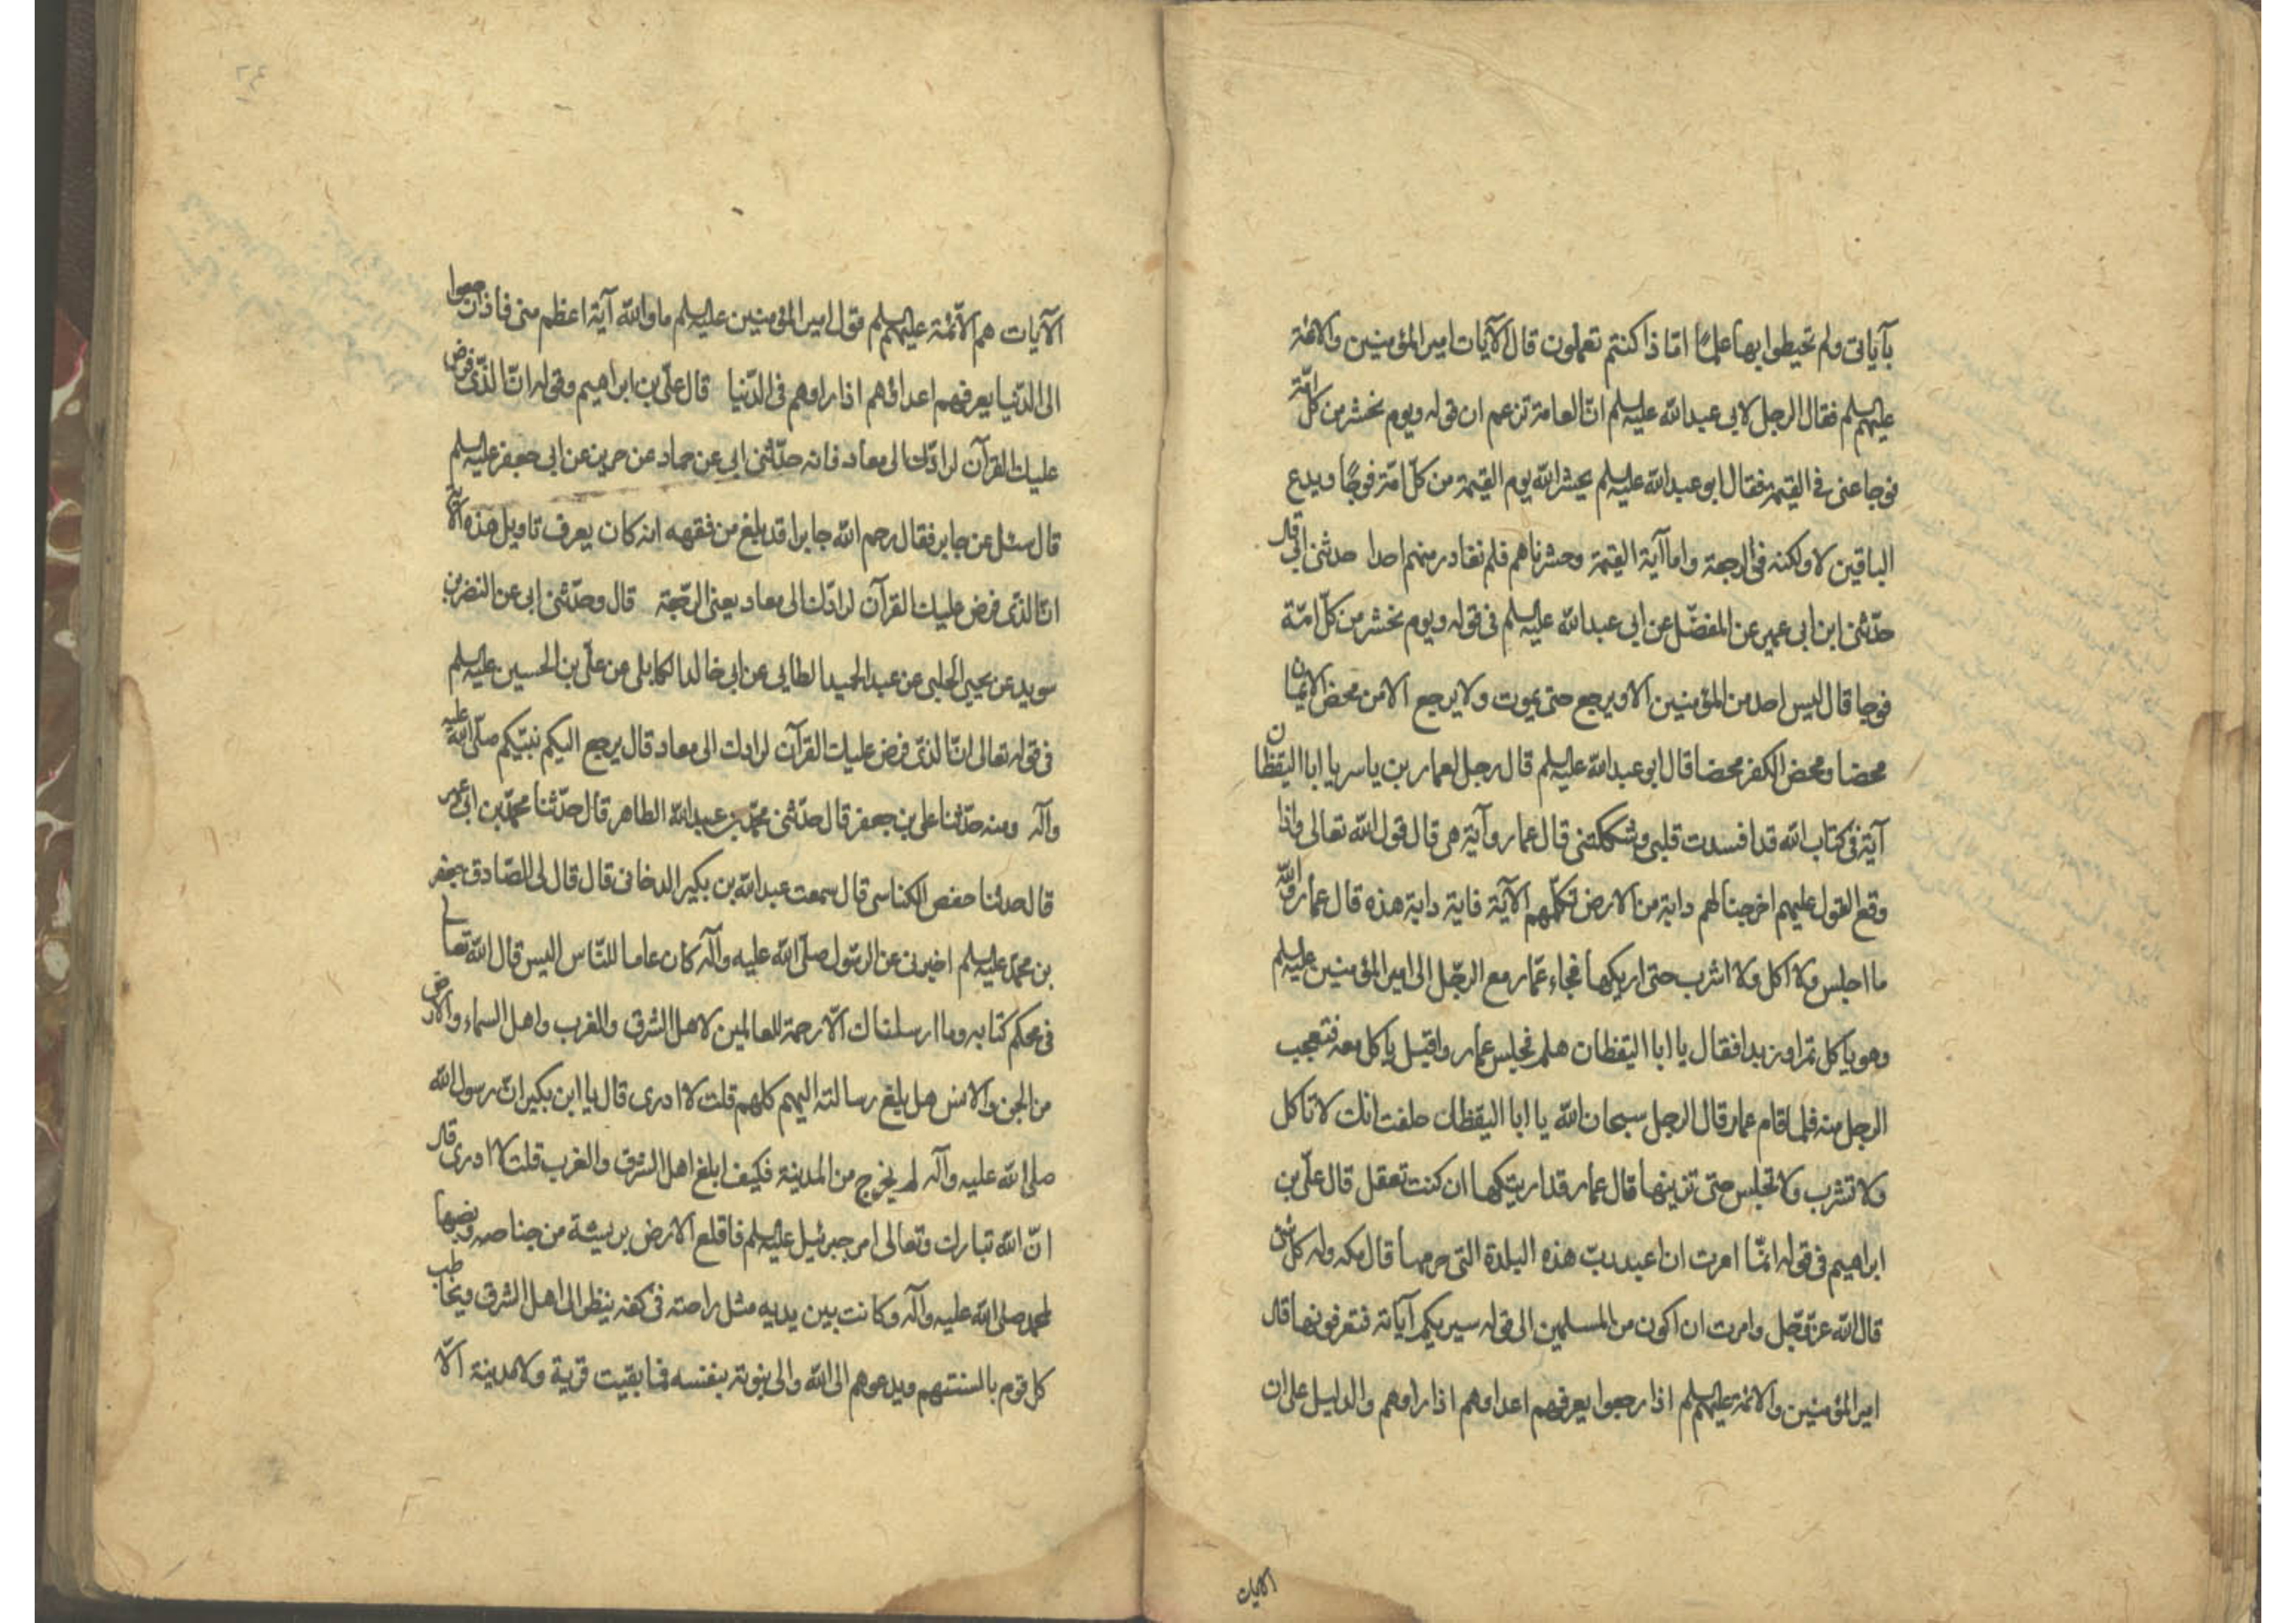 بآياتى ولم تحيطوا بها علما امّا ذا كنتم تعملون قال الآيات امير المؤمنين والائمة
عليهم السلم فقال الرجل لابى عبدالله عليه السلم انّ العامة تزعم ان قوله ويوم نحشر من كل امّة
فوجا عنى فى القيمة فقال ابو عبدالله عليه السلم يحشر الله يوم القيمة من كلّ امّة فوجًا ويدع
الباقين لا ولكنه فى الرجعة واما آية القيمة وحشرناهم فلم نغادر منهم احدا حدثنى ابى قال
حدّثنى ابن ابى عمير عن المفضّل عن ابى عبدالله عليه السلم فى قوله ويوم نحشر من كلّ امّة
فوجا قال ليس احد من المؤمنين الا ويرجع حتى يموت ولا يرجع الا من محض الايمان
محضا ومحض الكفر محضا قال ابو عبدالله عليه السلم قال رجل لعمار بن ياسر يا ابا اليقظان
آية فى كتاب الله قد افسدت قلبى وشككتنى قال عمار وآية هى قال قول الله تعالى واذا
وقع القول عليهم اخرجنا لهم دابة من الارض تكلّمهم الآية فاية دابة هذه قال عمار والله
ما اجلس ولا اكل ولا اشرب حتى اريكها فجاء عمّار مع الرجل الى امير المؤمنين عليه السلم
وهو ياكل تمرا وزبدا فقال يا ابا اليقظان هلم فجلس عمار واقبل ياكل معه فتعجب
الرجل منه فلما قام عمار قال الرجل سبحان الله يا ابا اليقظان حلفت انك لا تاكل
ولا تشرب ولا تجلس حتى ترينها قال عمار قد اريتكها ان كنت تعقل قال علىّ بن
ابراهيم فى قوله انّما امرت ان اعبد ربّ هذه البلدة التى حرمها قال مكه وله كل شئ
قال الله عزّ وجل وامرت ان اكون من المسلمين الى قوله سيريكم آياته فتعرفونها قال
امير المؤمنين والائمة عليهم السلم اذا رجعوا يعرفهم اعداوهم اذا راوهم والدليل على ان
الايات
الآيات هم الائمّة عليهم السلم قول امير المؤمنين عليه السلم ما والله آية اعظم منى فاذا رجعوا
الى الدّنيا يعرفهم اعداؤهم اذا راوهم فى الدّنيا قال علىّ بن ابراهيم وقوله انّ الذّى فرض
عليك القرآن لرادّك الى معاد فانه حدّثنى ابى عن حماد عن حريز عن ابى جعفر عليه السلم
قال سئل عن جابر فقال رحم الله جابرا قد بلغ من فقهه انه كان يعرف تاويل هذه الآية
انّ الذّى فرض عليك القرآن لرادّك الى معاد يعنى الرّجعة قال وحدّثنى ابى عن النضر بن
سويد عن يحيى الحلبى عن عبد الحميد الطايى عن ابى خالد الكابلى عن علىّ بن الحسين عليه السلم
فى قوله تعالى انّ الذّى فرض عليك القرآن لرادك الى معاد قال يرجع اليكم نبيّكم صلّى الله عليه
وآله ومنه حدّثنا على بن جعفر قال حدّثنى محمّد بن عبدالله الطاهر قال حدّثنا محمّد بن ابى عمر
قال حدثنا حفص الكناسى قال سمعت عبدالله بن بكير الدخانى قال قال لى الصّادق جعفر
بن محمّد عليه السلم اخبرنى عن الرّسول صلّى الله عليه وآله كان عاما للنّاس اليس قال الله تعالى
فى محكم كتابه وما ارسلناك الّا رحمة للعالمين لاهل الشرق والغرب واهل السماء والارض
من الجن والانس هل بلغ رسالته اليهم كلهم قلت لا ادرى قال يا ابن بكير انّ رسول الله
صلى الله عليه وآله لم يخرج من المدينة فكيف ابلغ اهل الشرق والغرب قلت لا ادرى قال
انّ الله تبارك وتعالى امر جبرئيل عليه السلم فاقلع الارض بريشة من جناحه ونصبها
لمحمد صلى الله عليه وآله وكانت بين يديه مثل راحته فى كفه ينظر الى اهل الشرق ويخاطب
كل قوم بالسنتهم ويدعوهم الى الله والى نبوته بنفسه فما بقيت قرية ولا مدينة الّا